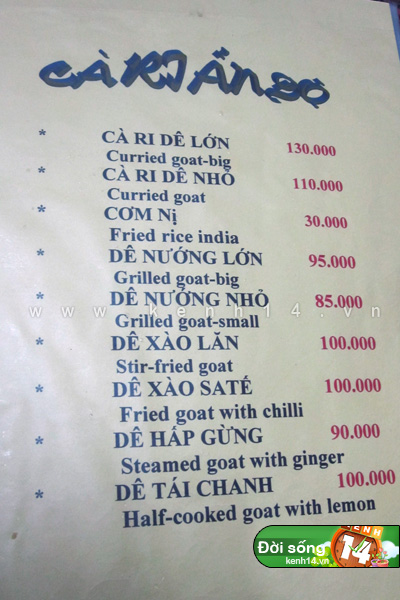 CÀ RI ẤN ĐỘ
* CÀ RI DÊ LỚN 130.000
Curried goat-big
* CÀ RI DÊ NHỎ 110.000
Curried goat
* CƠM Nị 30.000
Fried rice india
* DÊ NƯỚNG LỚN 95.000
Grilled goat-big
* DÊ NƯỚNG NHỎ 85.000
www.kenh14.vn
Grilled goat-small
* DÊ XÀO LĂN 100.000
Stir-fried goat
* DÊ XÀO SATẾ 100.000
Fried goat with chilli
* DÊ HẤP GỪNG 90.000
Steamed goat with ginger
* DÊ TÁI CHANH 100.000
Half-cooked goat with lemon
Đời sống
kenh14.vn
KENH
14